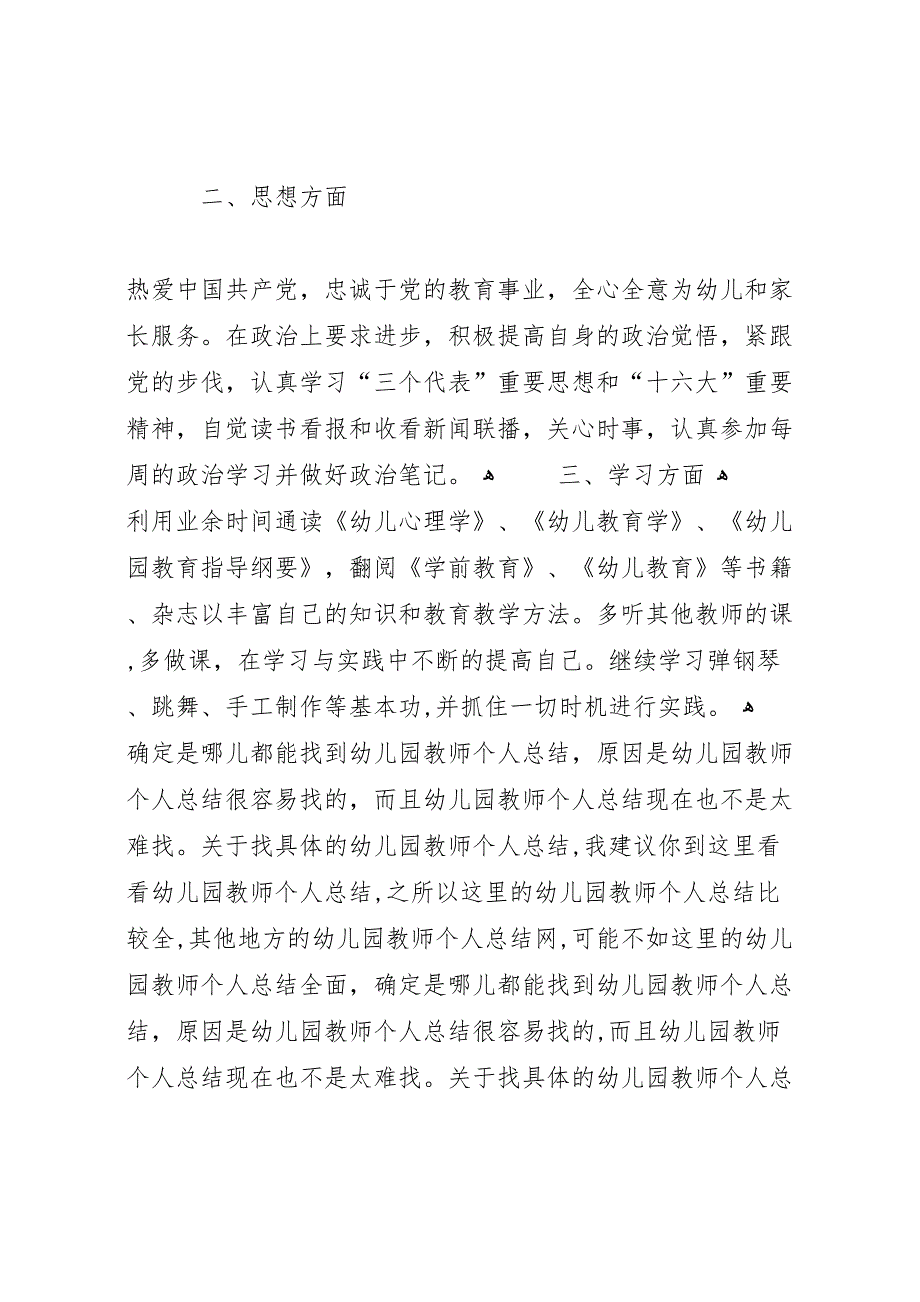 二、思想方面
热爱中国共产党，忠诚于党的教育事业，全心全意为幼儿和家
长服务。在政治上要求进步，积极提高自身的政治觉悟，紧跟
党的步伐，认真学习“三个代表”重要思想和“十六大”重要
精神，自觉读书看报和收看新闻联播，关心时事，认真参加每
周的政治学习并做好政治笔记。 ﻫ 三、学习方面 ﻫ
利用业余时间通读《幼儿心理学》、《幼儿教育学》、《幼儿
园教育指导纲要》，翻阅《学前教育》、《幼儿教育》等书籍
、杂志以丰富自己的知识和教育教学方法。多听其他教师的课
,多做课，在学习与实践中不断的提高自己。继续学习弹钢琴
、跳舞、手工制作等基本功,并抓住一切时机进行实践。 ﻫ
确定是哪儿都能找到幼儿园教师个人总结，原因是幼儿园教师
个人总结很容易找的，而且幼儿园教师个人总结现在也不是太
难找。关于找具体的幼儿园教师个人总结,我建议你到这里看
看幼儿园教师个人总结,之所以这里的幼儿园教师个人总结比
较全,其他地方的幼儿园教师个人总结网,可能不如这里的幼儿
园教师个人总结全面，确定是哪儿都能找到幼儿园教师个人总
结，原因是幼儿园教师个人总结很容易找的,而且幼儿园教师
个人总结现在也不是太难找。关于找具体的幼儿园教师个人总